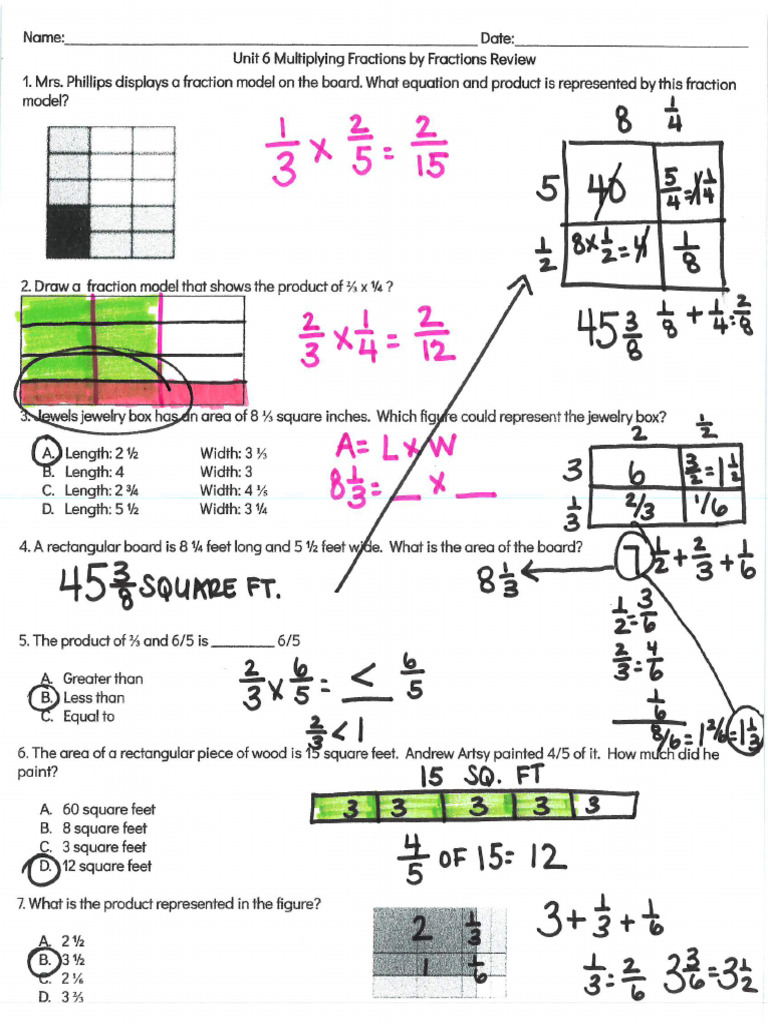 Name: Date:
Unit 6 Multiplying Fractions by Fractions Review
1. Mrs. Phillips displays a fraction model on the board. What equation and product is represented by this fraction
model?
1/3 x 2/5 = 2/15
8 1/4
5 40 5/4=1 1/4
1/2 8x1/2=4 1/8
45 3/8 1/8 + 1/4=2/8
2. Draw a fraction model that shows the product of ⅔ x ¼ ?
2/3 x 1/4 = 2/12
3. Jewels jewelry box has an area of 8 ⅓ square inches. Which figure could represent the jewelry box?
A. Length: 2 ½ Width: 3 ⅓
B. Length: 4 Width: 3
C. Length: 2 ¾ Width: 4 ⅓
D. Length: 5 ½ Width: 3 ¼
A= L x W
8 1/3 = _ x _
2 1/2
3 6 3/2=1 1/2
1/3 2/3 1/6
4. A rectangular board is 8 ¼ feet long and 5 ½ feet wide. What is the area of the board?
45 3/8 SQUARE FT.
8 1/3 7 1/2 + 2/3 + 1/6
1/2=3/6
2/3=4/6
1/6
8/6=1 2/6=1 1/3
5. The product of ⅔ and 6/5 is ________ 6/5
A. Greater than
B. Less than
C. Equal to
2/3 x 6/5 = < 6/5
2/3 < 1
6. The area of a rectangular piece of wood is 15 square feet. Andrew Artsy painted 4/5 of it. How much did he
paint?
15 SQ. FT
3 3 3 3 3
A. 60 square feet
B. 8 square feet
C. 3 square feet
D. 12 square feet
4/5 OF 15= 12
7. What is the product represented in the figure?
A. 2 ½
B. 3 ½
C. 2 ⅙
D. 3 ⅔
2 1/3
1 1/6
3 + 1/3 + 1/6
1/3 = 2/6 3 3/6 = 3 1/2